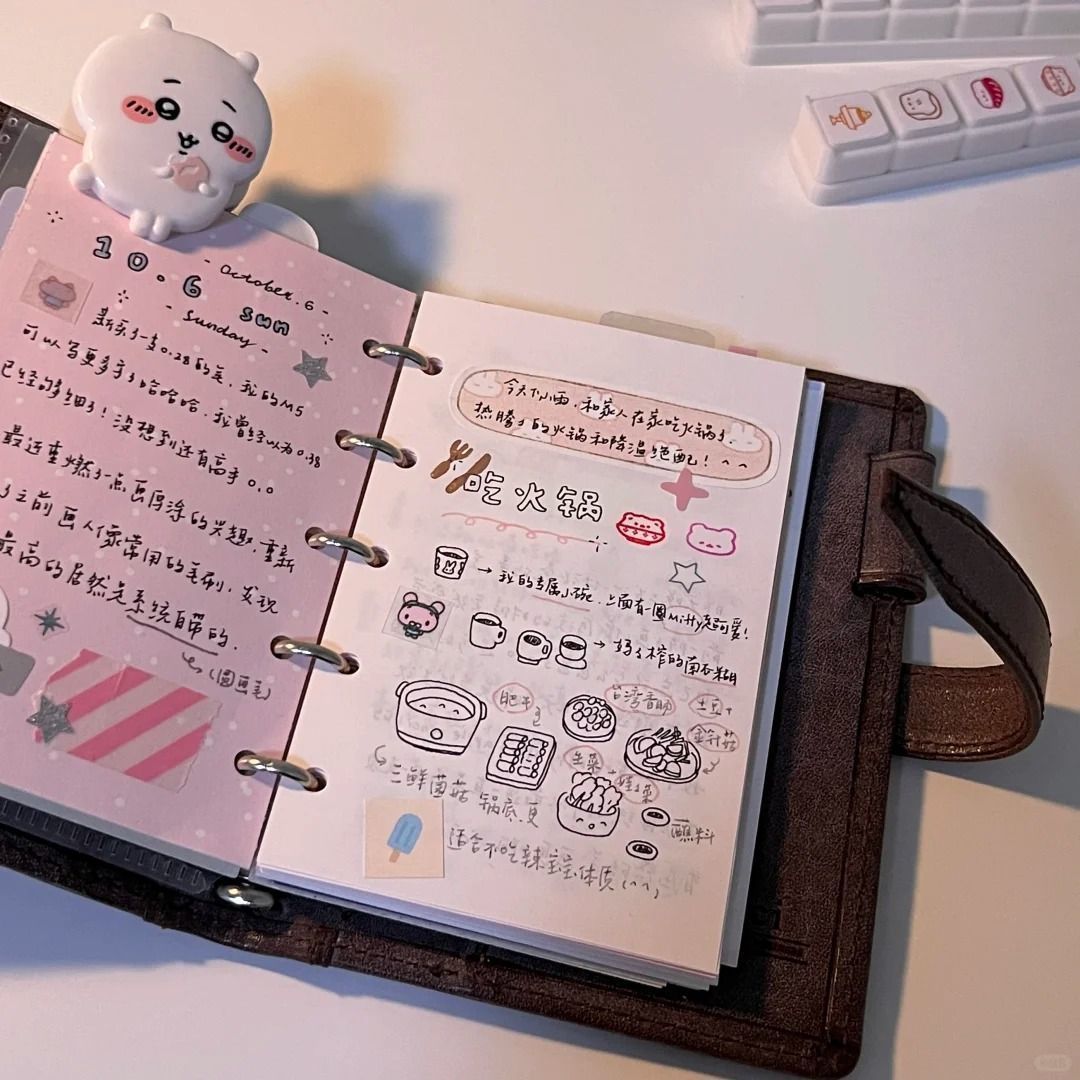 10.6 sun
- October.6 -
- Sunday -
新买了一支0.28的笔,我的M5
可以写更多字了哈哈哈,我曾经以为0.38
已经够细了!没想到还有高手 0.0
最近重燃了一点画厚涂的兴趣,重新
了之前画人像常用的笔刷,发现
最高的居然是系统自带的.
(圆画笔)
今天下小雨,和家人在家吃火锅了.
热腾腾的火锅和降温绝配!^^
吃火锅
→ 我的专属小碗,上面有一圈Miffy超可爱!
→ 妈妈榨的南瓜糊
肥牛
台湾香肠
土豆+
金针菇
生菜+娃娃菜
蘸料
三鲜菌菇锅底更
适合不吃辣宝宝体质(^^)